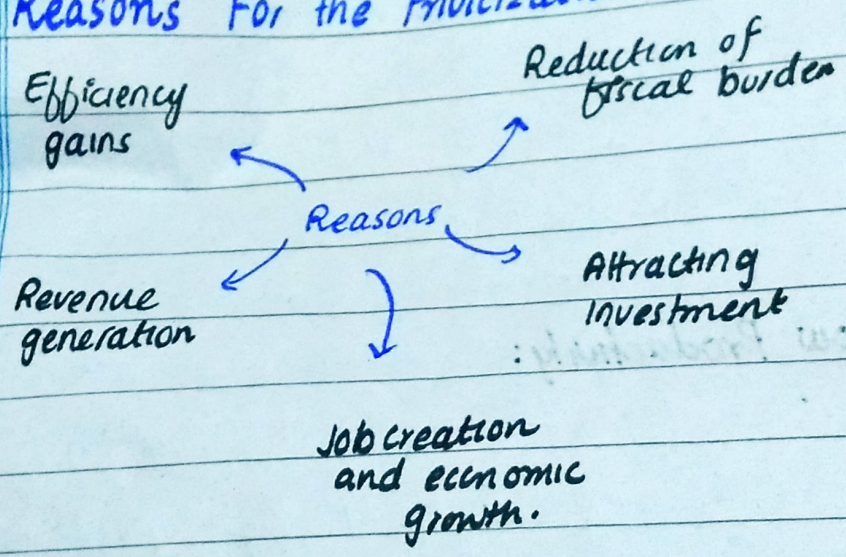 Reasons For the
Efficiency
gains
Reduction of
fiscal burden
Reasons
Revenue
generation
Attracting
investment
Job creation
and economic
growth.